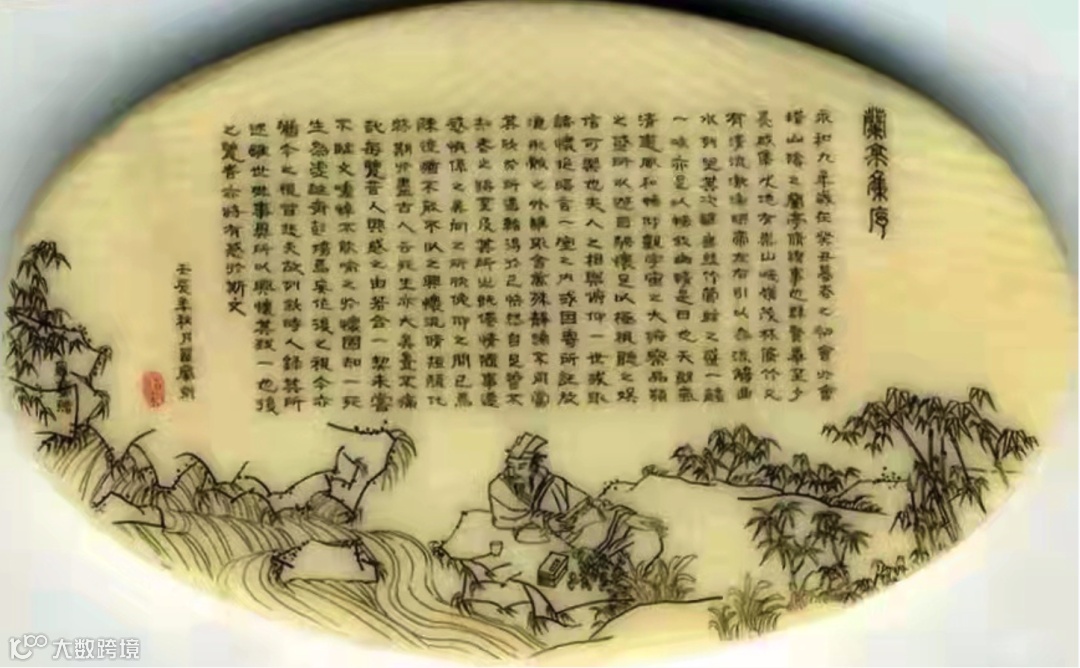 蘭亭集序
永和九年歲在癸丑暮春之初會於會
稽山陰之蘭亭脩禊事也群賢畢至少
長咸集此地有崇山峻嶺茂林脩竹又
有清流激湍映帶左右引以為流觴曲
水列坐其次雖無絲竹管絃之盛一觴
一詠亦足以暢敘幽情是日也天朗氣
清惠風和暢仰觀宇宙之大俯察品類
之盛所以遊目騁懷足以極視聽之娛
信可樂也夫人之相與俯仰一世或取
諸懷抱晤言一室之內或因寄所託放
浪形骸之外雖取舍萬殊靜躁不同當
其欣於所遇暫得於己怏然自足曾不
知老之將至及其所之既倦情隨事遷
感慨係之矣向之所欣俛仰之間已為
陳迹猶不能不以之興懷況脩短隨化
終期於盡古人云死生亦大矣豈不痛
哉每覽昔人興感之由若合一契未嘗
不臨文嗟悼不能喻之於懷固知一死
生為虛誕齊彭殤為妄作後之視今亦
猶今之視昔悲夫故列敘時人錄其所
述雖世殊事異所以興懷其致一也後
之覽者亦將有感於斯文
壬辰年秋月
大数跨境